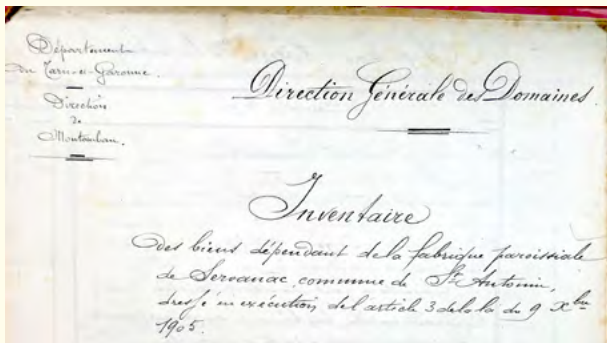 Département
du Tarn-et-Garonne.
Direction
de
Montauban.
Direction Générale des Domaines.
Inventaire
des biens dépendant de la fabrique paroissiale
de Servanac, commune de St Antonin,
dressé en exécution de l'article 3 de la loi du 9 Xbre
1905.